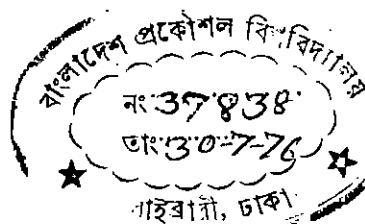 বাংলাদেশ প্রকৌশল বিশ্ববিদ্যালয়
নং 37838
তাং 30-7-76
লাইব্রারী, ঢাকা